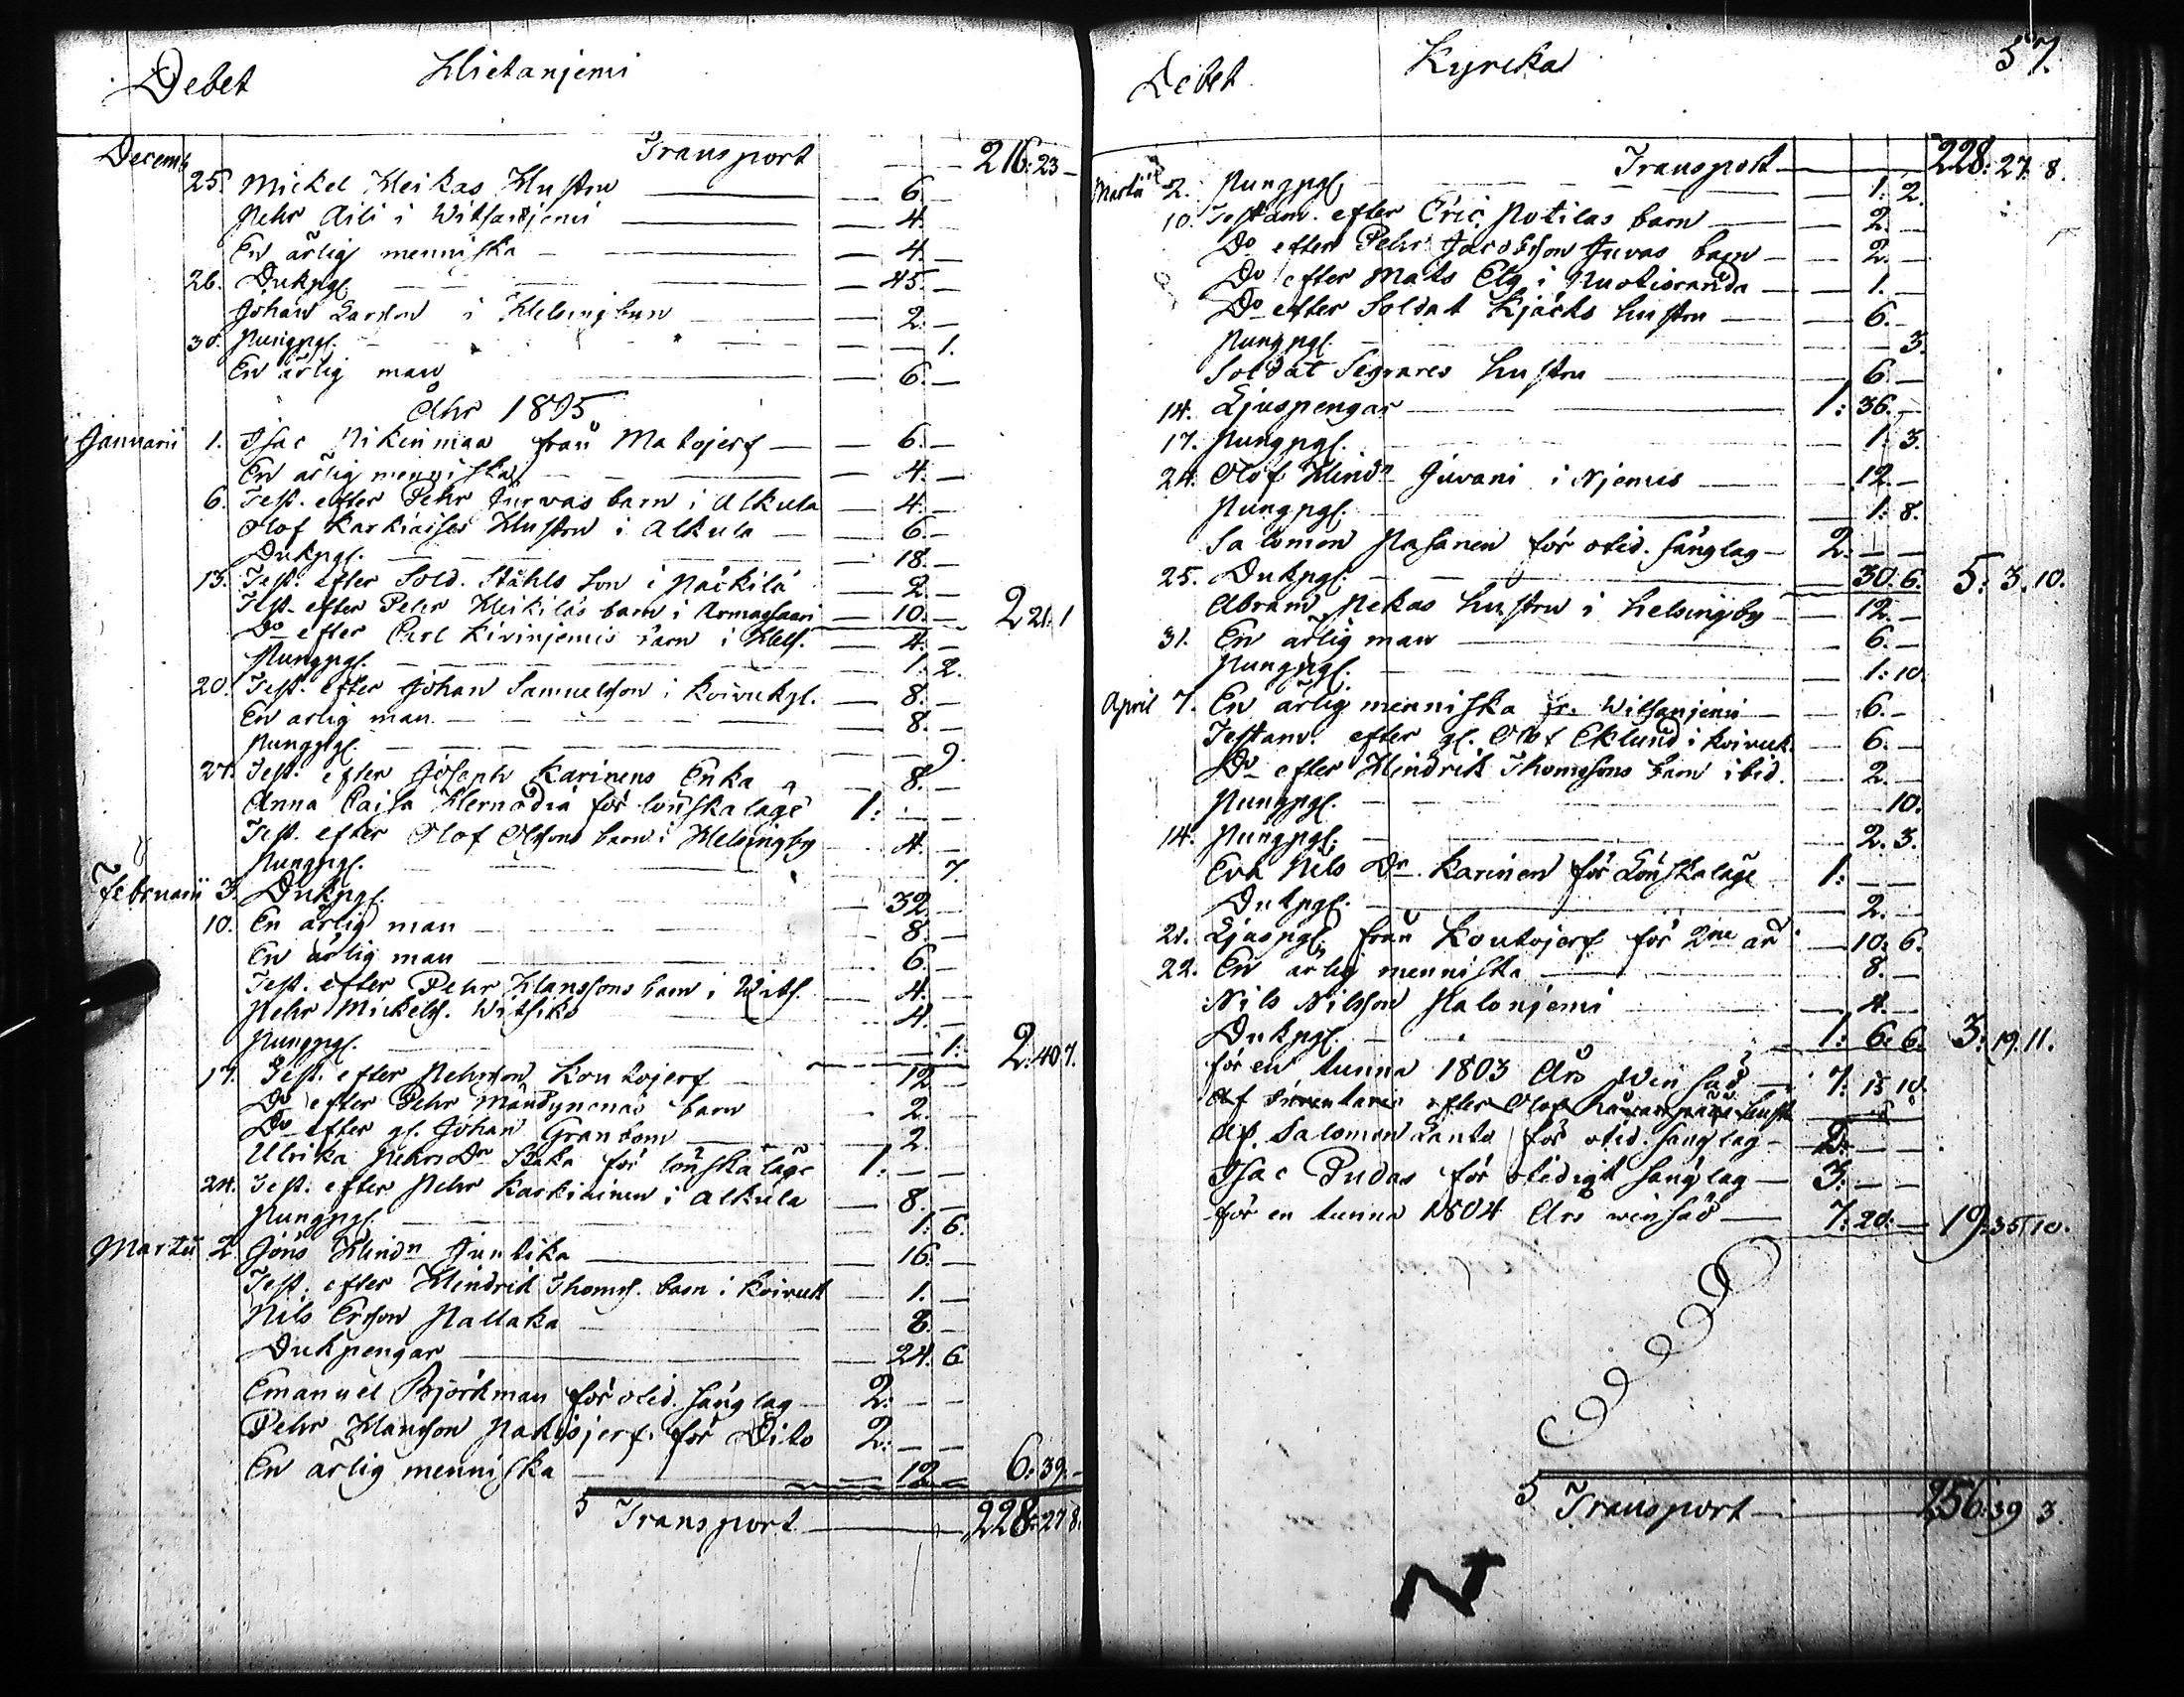 Debet Hietanjemi
Decemb Transport — 216: 23 —
25. Mickel Heikas Hustru — 6. —
Pehr Aili i Witsanjemi — 4.
En ärlig menniska — 4 —
26. Dukpgr. — 45. —
Johan Larsson i Helsingbyn — 2. —
30. Pungpgr. — 1.
En ärlig man — 6. —
Åhr 1805
Januarii 1. Isac Nikinmaa från Matojerf — 6. —
En ärlig menniska — 4. —
6. Test. efter Pehr Juvas barn i Alkula — 4. —
Olof Karkiaises Hustru i Alkula — 6. —
Dukpgr. — 18. —
13. Test. efter Sold. Ståhls son i Päckilä — 2. —
Test. efter Pehr Heikiläs barn i Armassaari — 10. — 2 21. 1
Do efter Carl Kivinjemis barn i Hels. — 4. —
Pungpgr. — 1. 2.
20. Test. efter Johan Samuelsson i Koivukyl. — 8. —
En ärlig man — 8. —
Pungpgr. — 9.
27. Test. efter Joseph Karinens Enka — 8. —
Anna Caisa Hernädiä för lönskaläge 1: — —
Test. efter Olof Olssons barn i Helsingby — 4. —
Pungpgr. — 7.
Februarii 3. Dukpgr. — 32. —
10. En ärlig man — 8. —
En ärlig man — 6. —
Test. efter Pehr Hanssons barn i Wits. — 4. —
Pehr Mickels. Witsiko — 4. —
Pungpgr. — 1: 2: 40 7.
17. Test. efter Pehrsson Koutojerf — 12 —
Do efter Pehr Mändynenäs barn — 2. —
Do efter gl. Johan Granbom — 2. —
Ulrika Pehrs Dr Baka för lönskaläge 1: — —
24. Test. efter Pehr Karkiainen i Alkula — 8. —
Pungpgr. — 1: 6.
Martii 2. Jöns Hindn Juntika — 16. —
Test. efter Hindrik Thoms. barn i Koivuk — 1. —
Nils Ersson Pallaka — 8. —
Dukpengar — 24. 6
Emanuel Björkman för otid. sänglag 2: — —
Pehr Hansson Pakisjerf för Dito 2: — —
En ärlig menniska — 12 — 6: 39. —
Transport — 228: 27 8.
Debet Kyrcka 57.
Transport — 228: 27. 8.
Martii 2. Pungpgr. — 1: 2.
10. Testam. efter Eric Potilas barn — 2. —
Do efter Pehr Jacobsson Juvas barn — 2. —
Do efter Mats Elg i Nuotioranda — 1. —
Do efter Soldat Kjäcks hustru — 6. —
Pungpgr. — 3.
Soldat Segrares hustru — 6 —
14. Ljuspengar — 1: 36. —
17. Pungpgr. — 1: 3.
24. Olof Hindn Juvani i Njemis — 12. —
Pungpgr. — 1: 8.
Salomon Pasanen för otid. sänglag — 2: — —
25. Dukpgr. — 30. 6. 5: 3. 10.
Abram Pekas hustru i helsingby — 12. —
31. En ärlig man — 6. —
Pungpgr. — 1: 10.
April 7. En ärlig menniska fr. Witsanjemi — 6. —
Testam. efter gl. Olof Eklund i Koivuk — 6. —
Do efter Hindrik Thomssons barn ibid. — 2. —
Pungpgr. — 10.
14. Pungpgr. — 2. 3.
Eva Nils Dr Karinen för Lönskaläge 1: — —
Dukpgr. — 2. —
21. Ljuspgr. från Koutojerf för 2ne år — 10: 6.
22. En ärlig menniska — 8. —
Nils Nilsson Palonjemi — 4. —
Dukpgr. — 1: 6. 6. 3: 19. 11.
för en tunna 1803 Års winsäd — 7: 15 10.
Af Inventarier efter Olof hust
Af Salomon Lanto för otid. sänglag — 2: — —
Isac Pudas för otidigt sänglag — 3: — —
för en tunna 1804 Års winsäd — 7: 20. — 19: 35 10.
Transport — 256: 39 3.
N